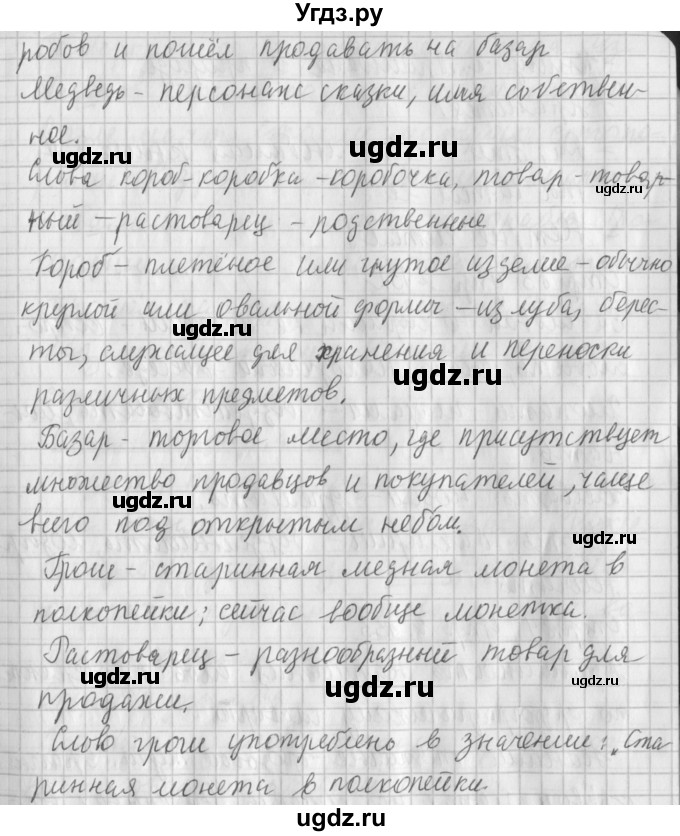 Угдз.ру
робов и пошёл продавать на базар
Медведь - персонаж сказки, имя собствен-
ное.
ugdz.ru ugdz.ru
Слова короб-коробка-коробочка, товар-товар-
ugdz.ru
ный - растоварец - родственные
Короб - плетёное или гнутое изделие - обычно
круглой или овальной формы - из луба, берес-
ugdz.ru ugdz.ru
ты, служащее для хранения и переноски
ugdz.ru
различных предметов.
Базар - торговое место, где присутствует
множество продавцов и покупателей, чаще
ugdz.ru
всего под открытым небом.
ugdz.ru
Грош - старинная медная монета в
полкопейки; сейчас вообще монетка.
Растоварец - разнообразный товар для
ugdz.ru ugdz.ru
продажи.
Слово грош употреблено в значении: „Ста
ugdz.ru
ринная монета в полкопейки
ugdz.ru